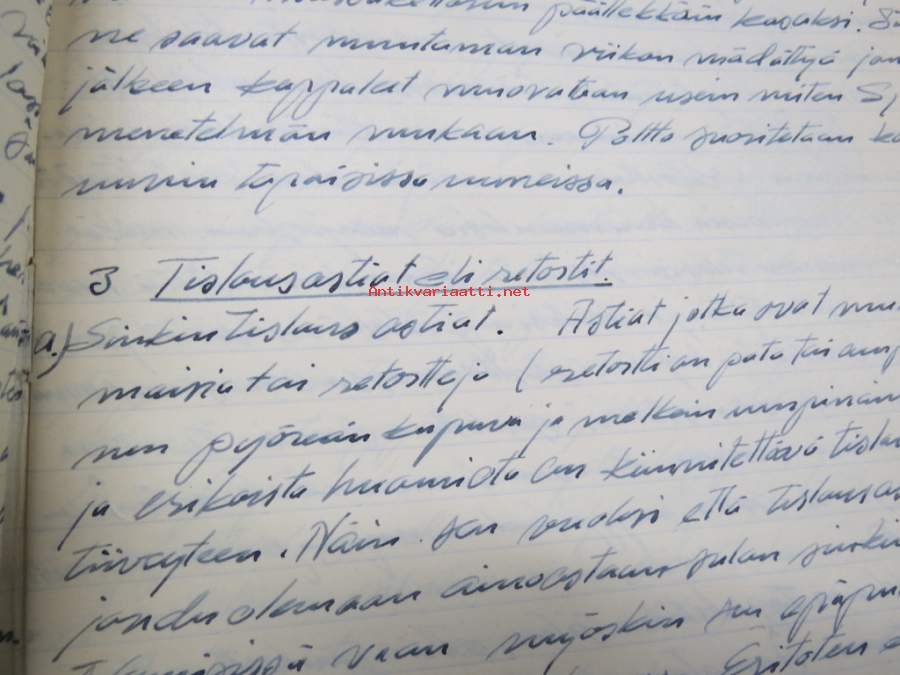 päällekkäin kasaksi.
ne saavat muutaman viikon mädättyä jon
jälkeen kappaleet muovataan usein miten S
menetelmän mukaan. Poltto suoritetaan ka
uunin tapaisissa uuneissa.
3 Tislausastiat eli retortit.
Antikvariaatti.net
a.) Sinkin tislaus astiat. Astiat jotka ovat muu
maisia tai retortteja (retortti on pata tai amp
nen pyöreän kupera ja melkein umpinäin
ja erikoista huomiota on kiinnitettävä tislau
tiiveyteen. Näin sen vuoksi että tislausas
joudu olemaan ainoastaan sulan sinkin
vaan myöskin sen
Eritoten